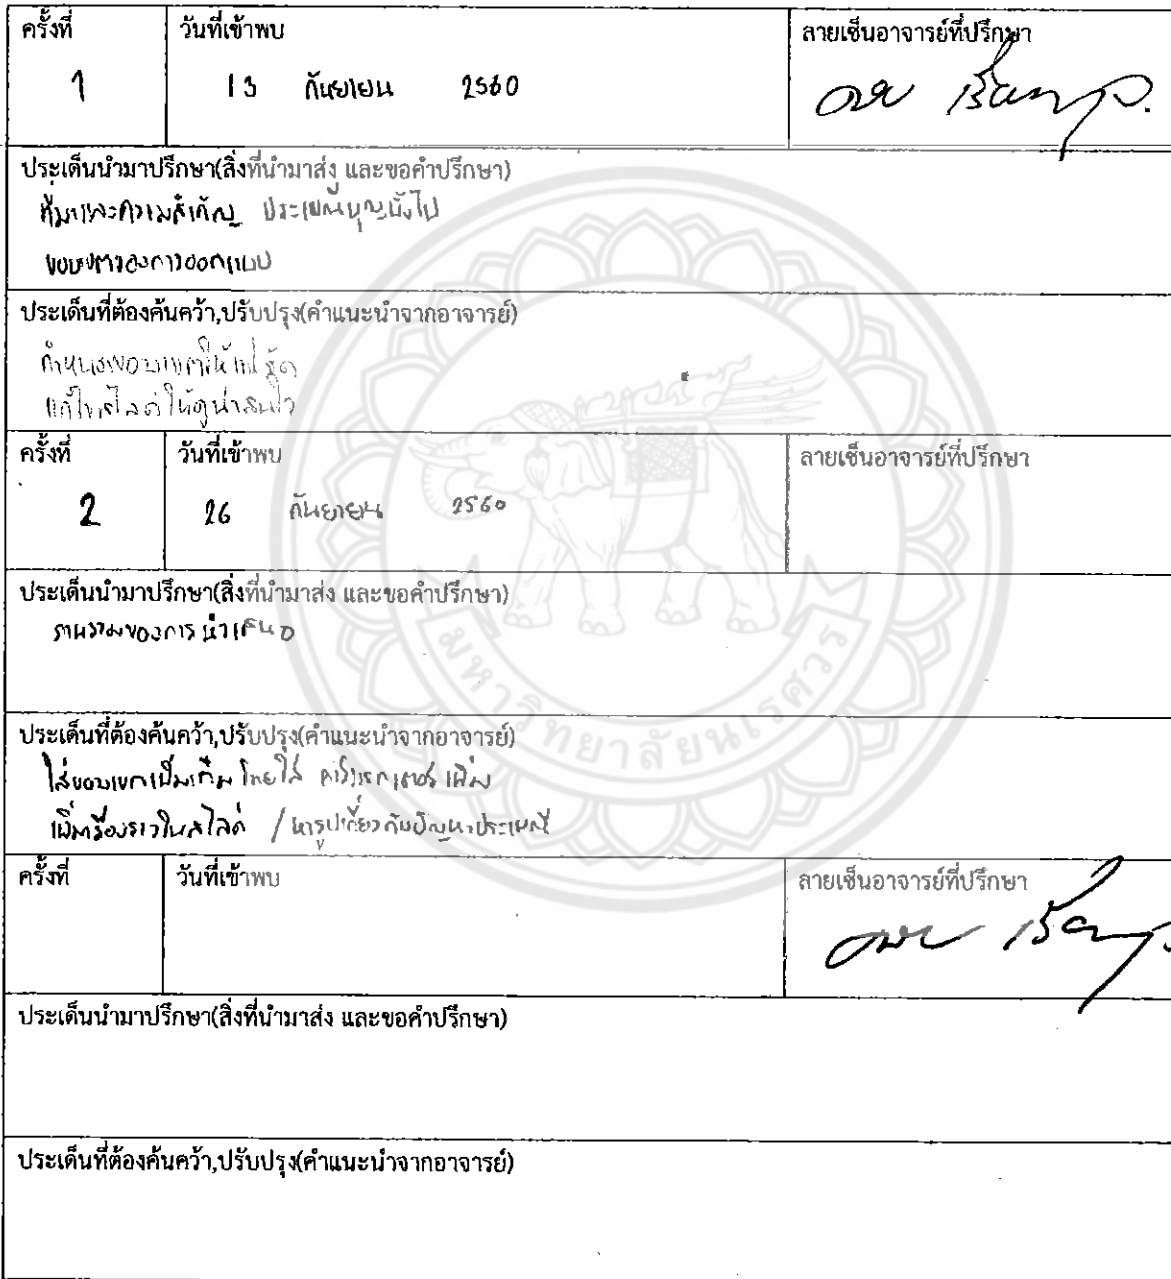 ครั้งที่ วันที่เข้าพบ ลายเซ็นอาจารย์ที่ปรึกษา
1 13 กันยายน 2560
ประเด็นนำมาปรึกษา(สิ่งที่นำมาส่ง และขอคำปรึกษา)
ที่มาและความสำคัญ ประเพณีบุญบั้งไฟ
ขอบเขตของการออกแบบ
ประเด็นที่ต้องค้นคว้า,ปรับปรุง(คำแนะนำจากอาจารย์)
กำหนดขอบเขตให้แน่ชัด
แก้ไขสไลด์ให้ดูน่าสนใจ
ครั้งที่ วันที่เข้าพบ ลายเซ็นอาจารย์ที่ปรึกษา
2 26 กันยายน 2560
ประเด็นนำมาปรึกษา(สิ่งที่นำมาส่ง และขอคำปรึกษา)
ภาพรวมของการนำเสนอ
ประเด็นที่ต้องค้นคว้า,ปรับปรุง(คำแนะนำจากอาจารย์)
ใส่ขอบเขตเพิ่มเติม โดยใส่ คาแรกเตอร์ เพิ่ม
เพิ่มเรื่องราวในสไลด์ / หารูปเกี่ยวกับปัญหาประเพณี
ครั้งที่ วันที่เข้าพบ ลายเซ็นอาจารย์ที่ปรึกษา
ประเด็นนำมาปรึกษา(สิ่งที่นำมาส่ง และขอคำปรึกษา)
ประเด็นที่ต้องค้นคว้า,ปรับปรุง(คำแนะนำจากอาจารย์)
มหาวิทยาลัยนเรศวร